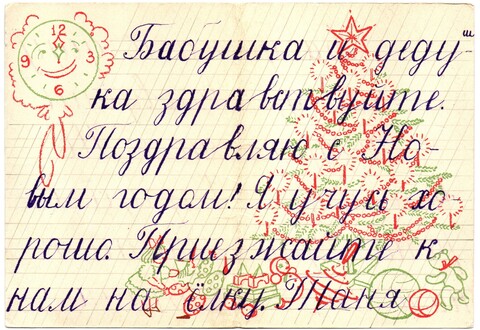 12
3
6
9
Бабушка и деду
ш
ка здравствуйте.
Поздравляю с Но-
вым годом! Я учусь хо
рошо. Приезжайте к
нам на ёлку. Таня